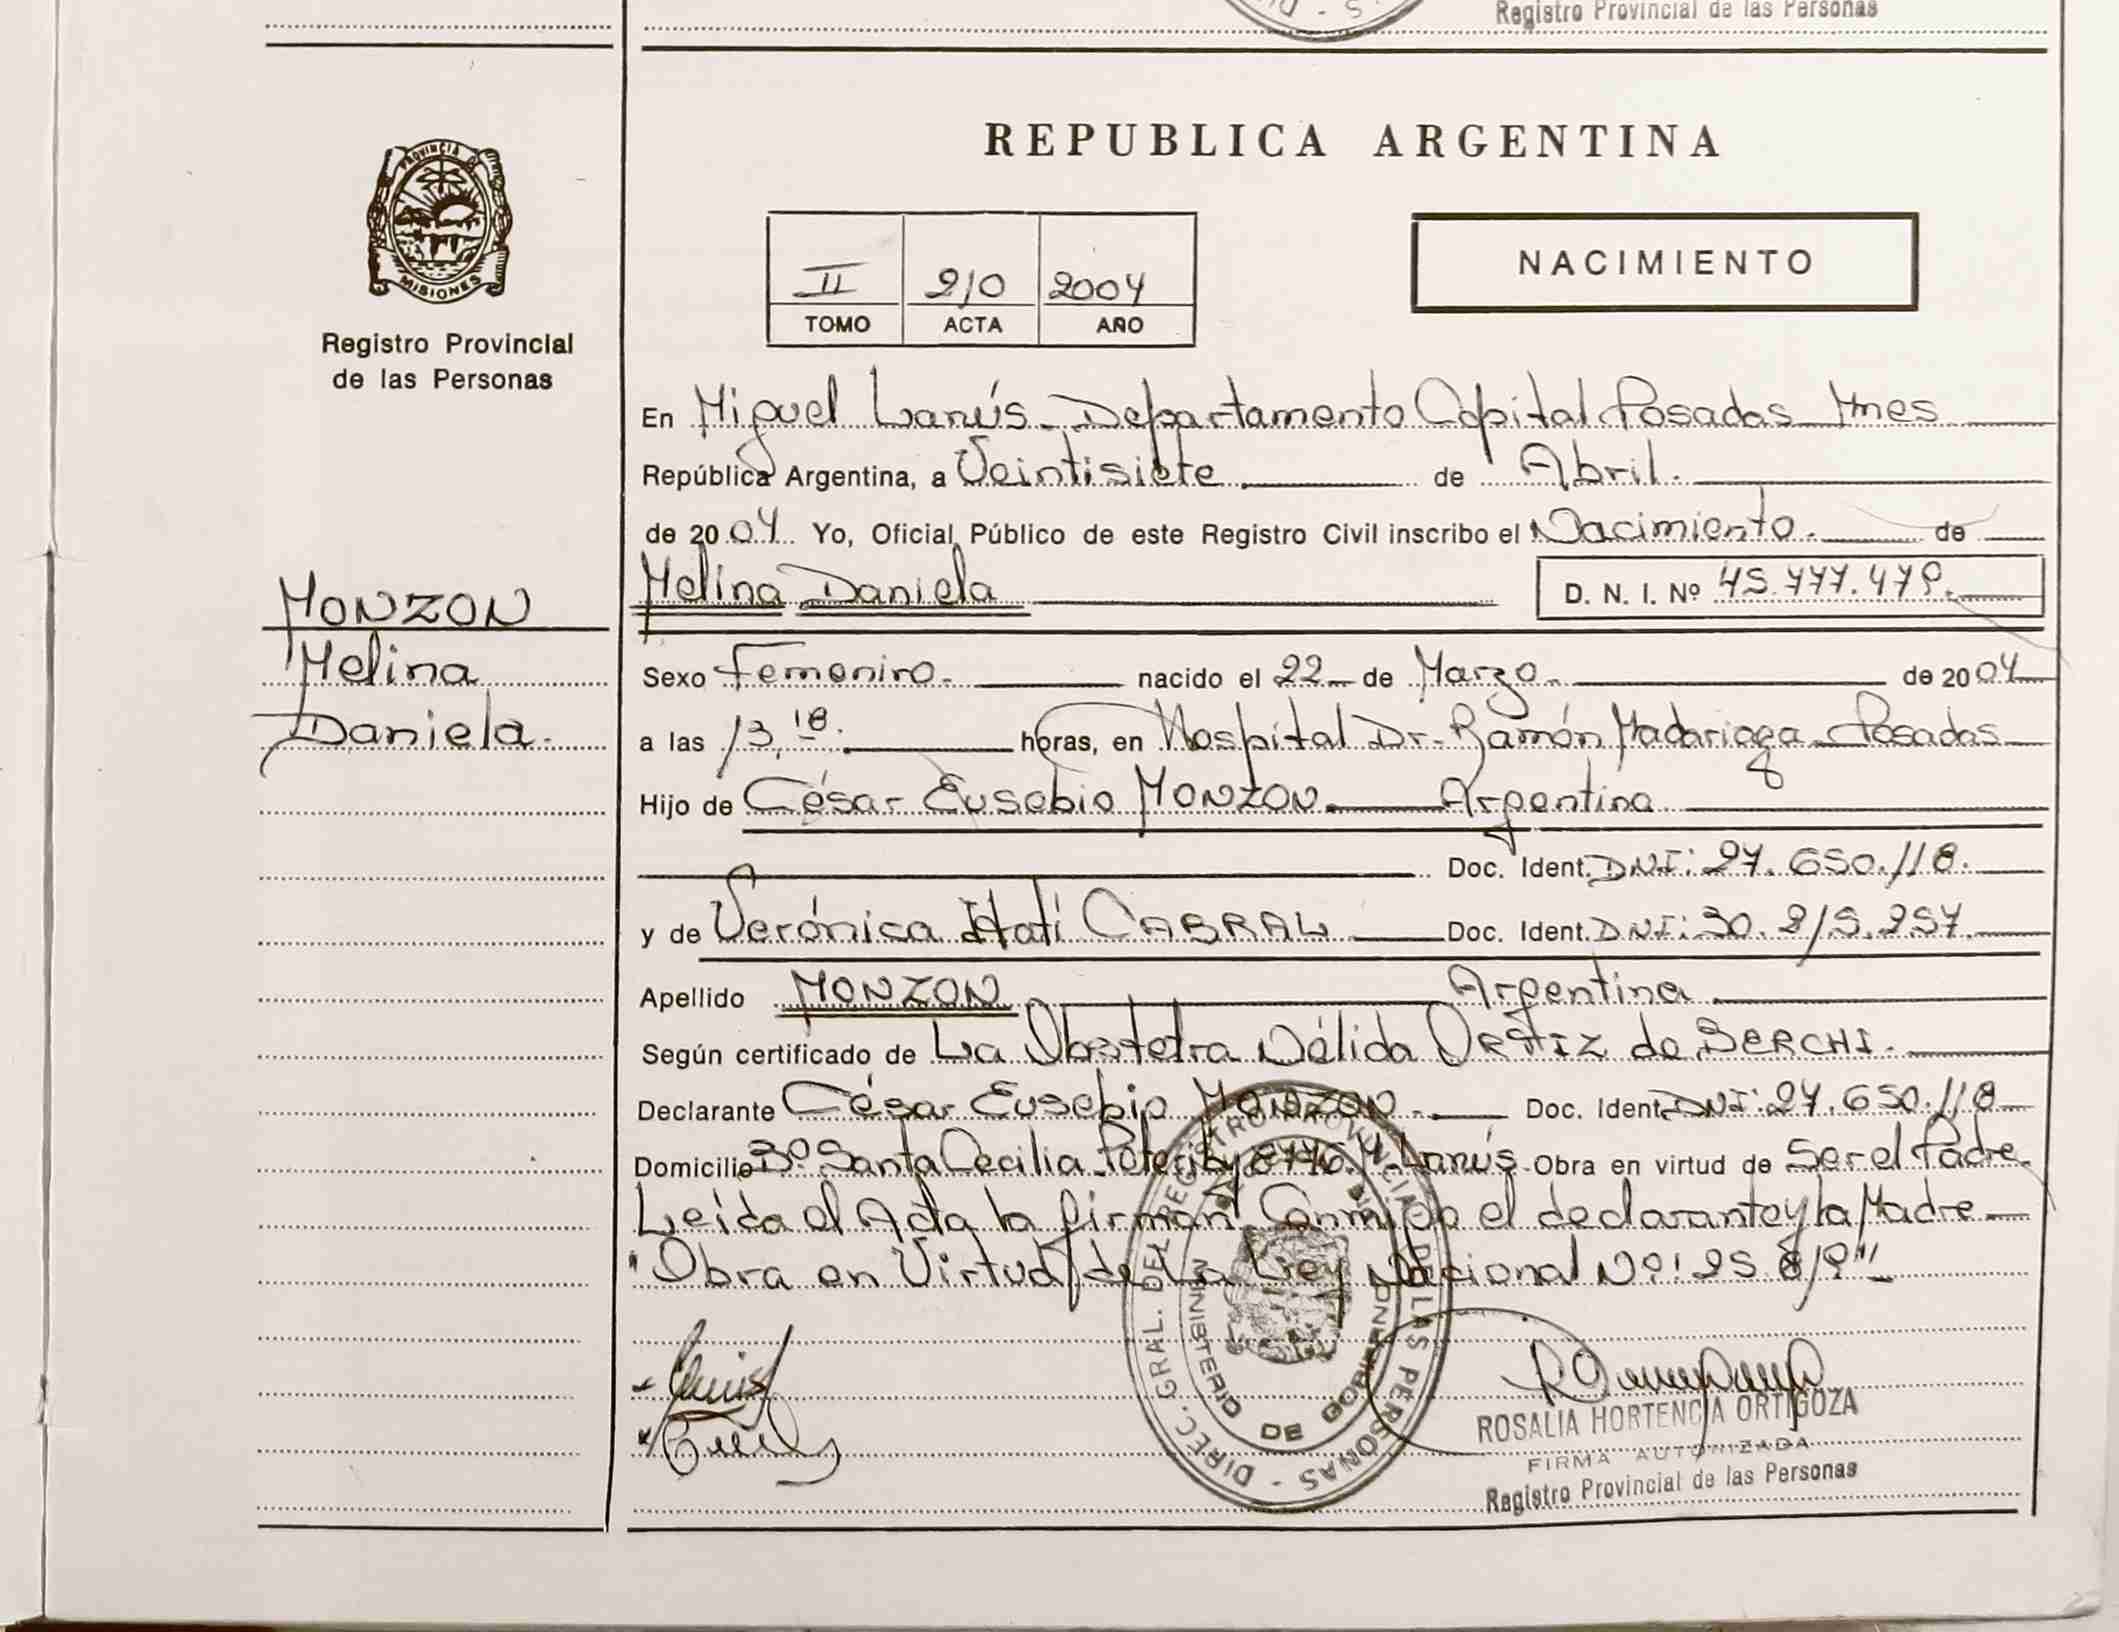 Registro Provincial de las Personas
PROVINCIA DE
MISIONES
Registro Provincial
de las Personas
MONZON
Melina
Daniela.
REPUBLICA ARGENTINA
II 210 2004
TOMO ACTA AÑO
NACIMIENTO
En Miguel Lanús - Departamento Capital Posadas Mnes
República Argentina, a Veintisiete de Abril.
de 2004 Yo, Oficial Público de este Registro Civil inscribo el Nacimiento. de
Melina Daniela
D. N. I. Nº 45.777.479.
Sexo Femenino. nacido el 22 de Marzo. de 2004
a las 13,18. horas, en Hospital Dr. Ramón Madariaga Posadas
Hijo de César Eusebio MONZON Argentina
Doc. Ident. DNI: 27.650.118.
y de Verónica Itatí CABRAL Doc. Ident. DNI: 30.215.257.
Apellido MONZON Argentina
Según certificado de La Obstetra Délida ORTIZ de BERCHI.
Declarante César Eusebio MONZON. Doc. Ident. DNI: 27.650.118
Domicilio Bº Santa Cecilia M. Lanús Obra en virtud de Ser el Padre
Leída el Acta la firman Conmigo el declarante y la Madre
"Obra en Virtud de la Ley Nacional Nº: 25.819"
DIREC. GRAL. DEL REGISTRO PROVINCIAL DE LAS PERSONAS
MINISTERIO DE GOBIERNO
ROSALIA HORTENCIA ORTIGOZA
FIRMA AUTORIZADA
Registro Provincial de las Personas